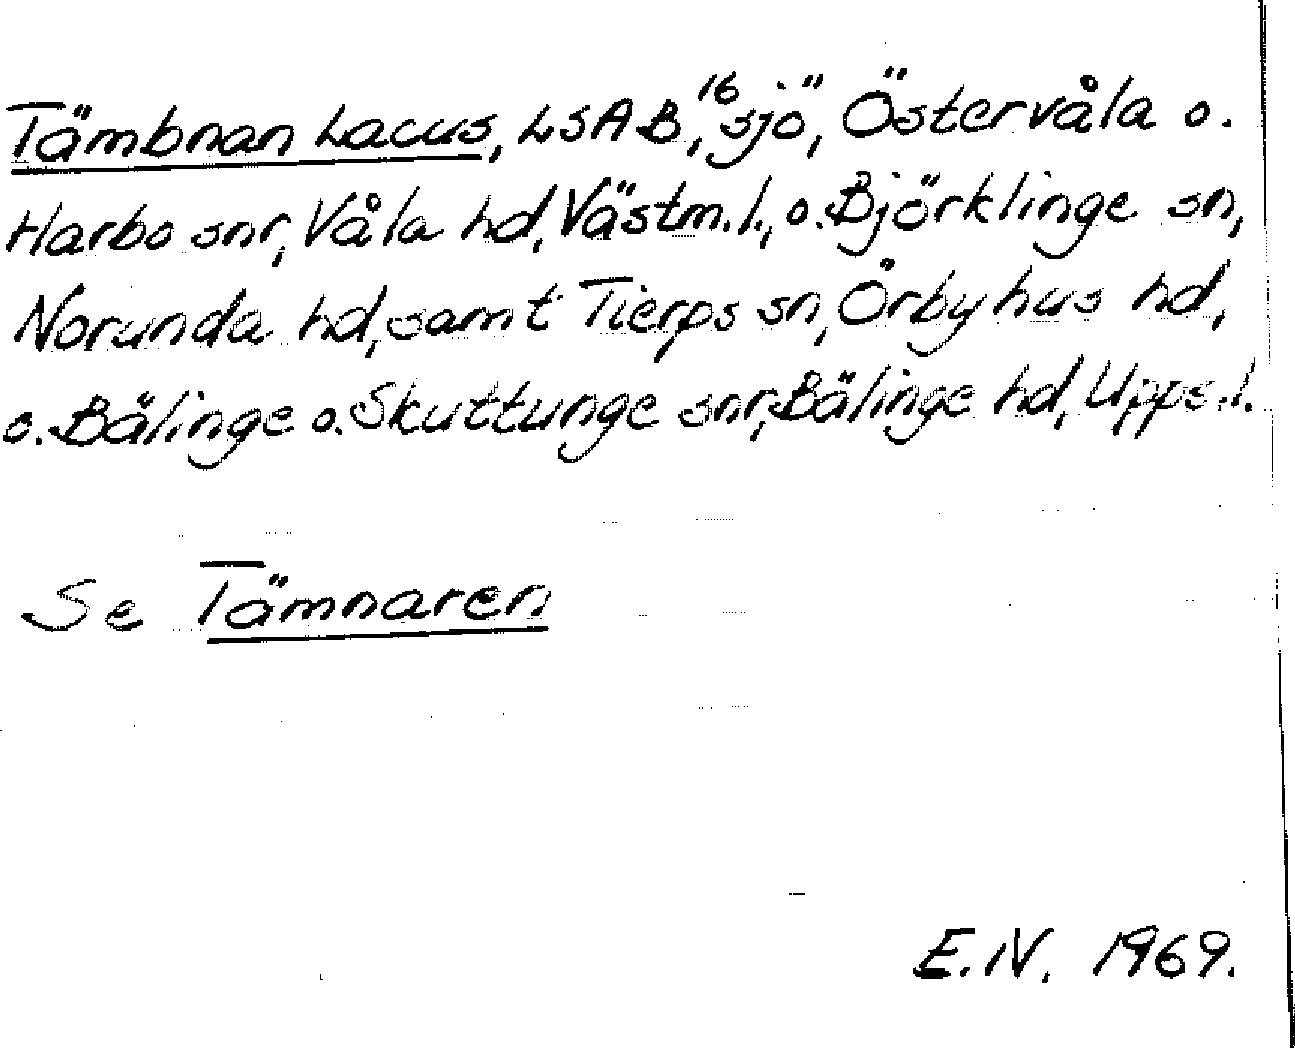 Tämbnan Lacus, LSAB,¹⁶ sjö, Östervåla o.
Harbo snr, Våla hd, Västm.l., o. Björklinge sn,
Norunda hd, samt Tierps sn, Örbyhus hd,
o. Bälinge o. Skuttunge snr, Bälinge hd, Upps.l.
Se Tämnaren
E.IV. 1969.